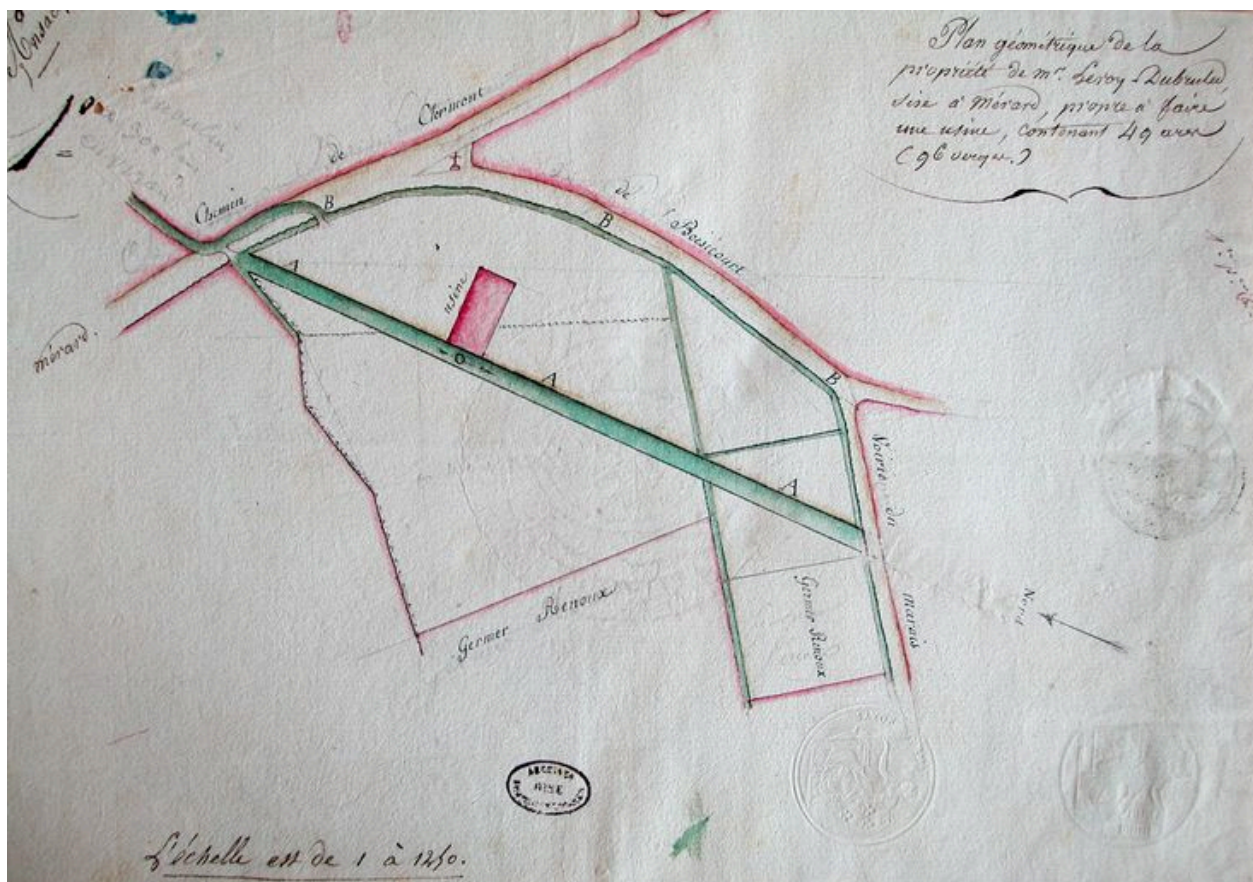 Plan géométrique de la
propriété de mr. Leroy-Dubrulez,
sise à Mérard, propre à faire
une usine, contenant 49 ares
(96 verges.)
Chemin
de
Clermont
de
Boisicourt
mérard.
B
B
B
A
A
A
usine
O
Voirie du
marais
Germer Renoux
Germer Renoux
Nord
ARCHIVES
OISE
L'échelle est de 1 à 1250.